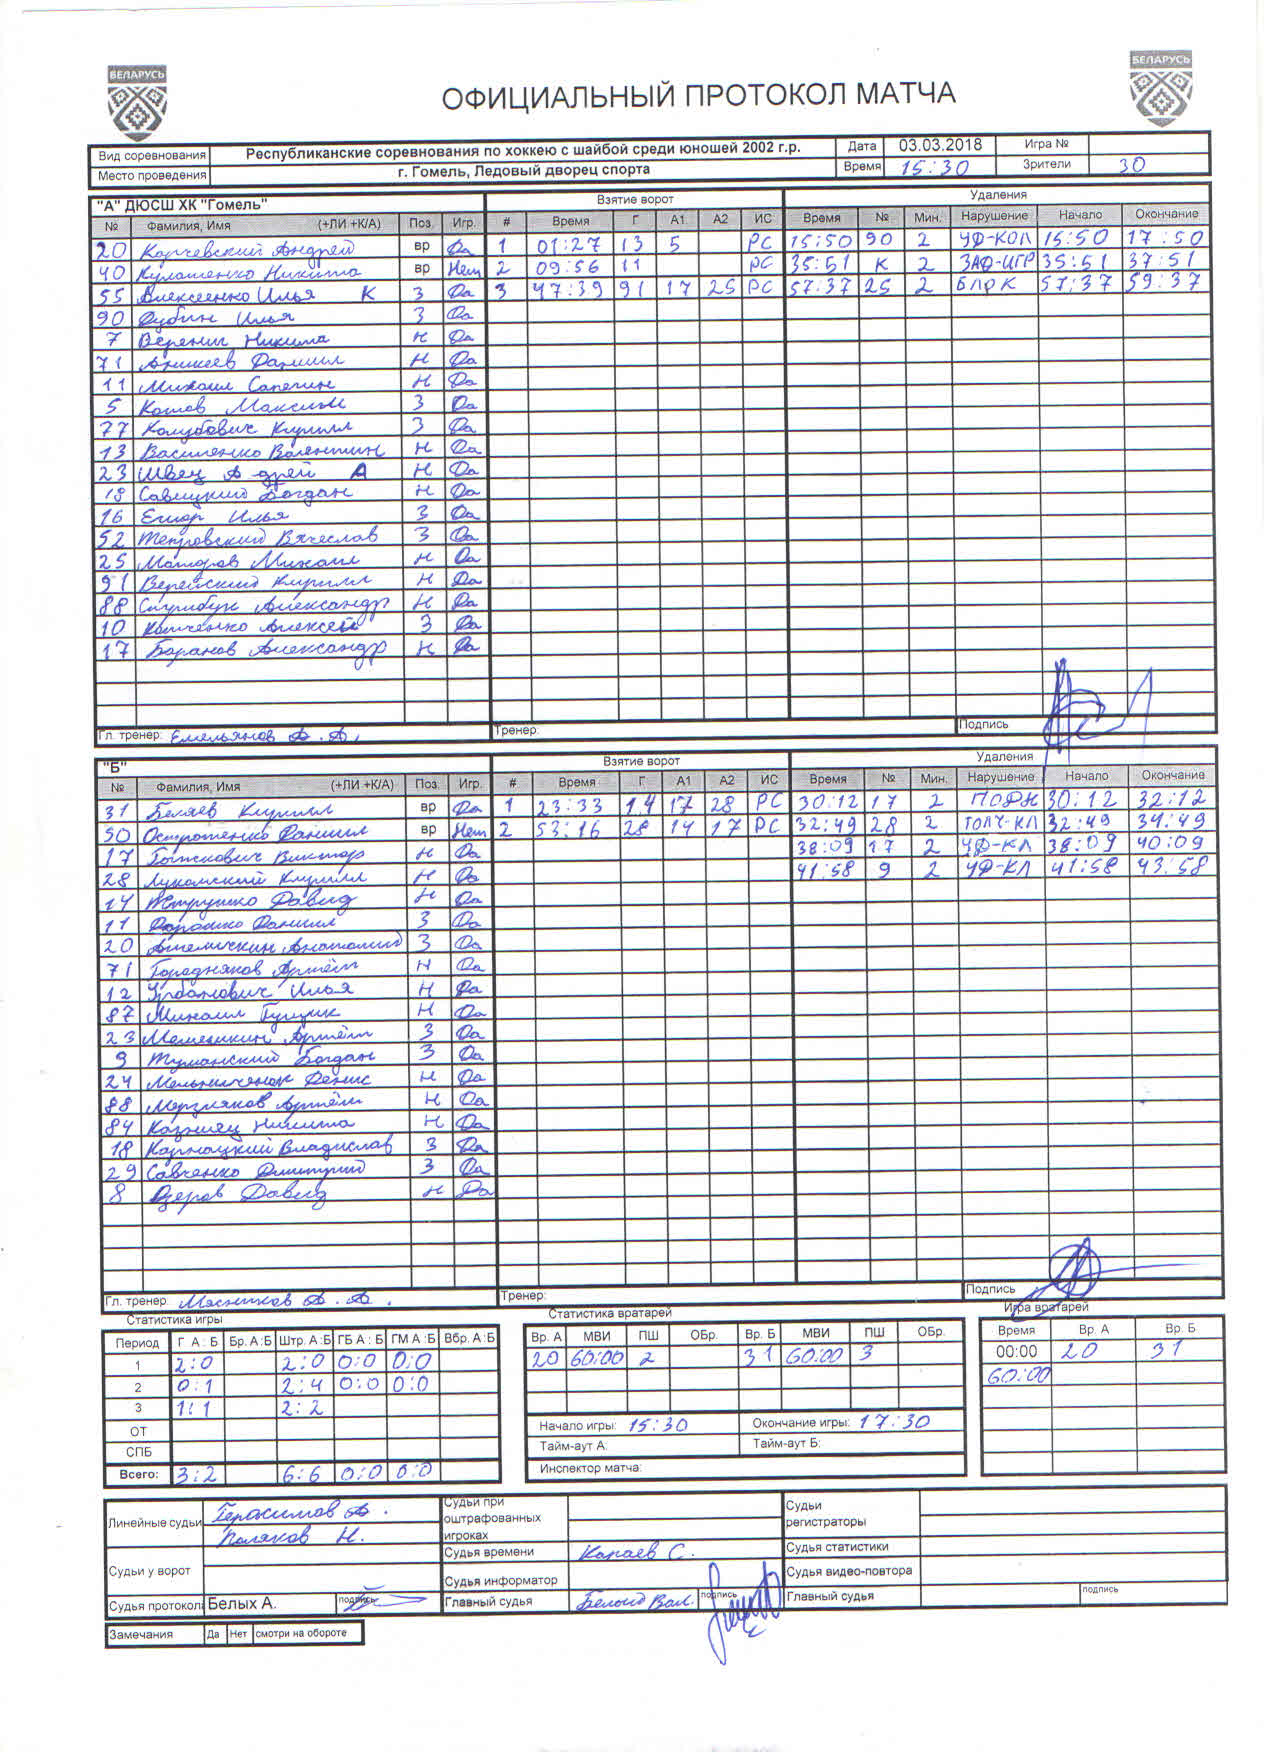 БЕЛАРУСЬ
БЕЛАРУСЬ
ОФИЦИАЛЬНЫЙ ПРОТОКОЛ МАТЧА
Вид соревнования Республиканские соревнования по хоккею с шайбой среди юношей 2002 г.р. Дата 03.03.2018 Игра №
Место проведения г. Гомель, Ледовый дворец спорта Время 15:30 Зрители 30
"А" ДЮСШ ХК "Гомель" Взятие ворот Удаления
№ Фамилия, Имя (+ЛИ +К/А) Поз Игр. # Время Г А1 А2 ИС Время № Мин. Нарушение Начало Окончание
20 Корчевский Андрей вр Да 1 01:27 13 5 РС 15:50 90 2 УД-КОЛ 15:50 17:50
40 Никита вр Нет 2 09:56 11 РС 35:51 К 2 ЗАД-ИГР 35:51 37:51
55 Алексеенко Илья К З Да 3 47:39 91 17 25 РС 57:37 25 2 БЛРК 57:37 59:37
90 Дубин Илья З Да
7 Веренич Никита Н Да
71 Аникеев Даниил Н Да
11 Михаил Сапегин Н Да
5 Котов Максим З Да
77 Колубович Кирилл З Да
13 Василенко Валентин Н Да
23 Швец А дрей А Н Да
18 Савицкий Богдан Н Да
16 Илья З Да
52 Петровский Вячеслав З Да
25 Маторов Михаил Н Да
91 Верейский Кирилл Н Да
88 Александр Н Да
10 Алексей З Да
17 Баранов Александр Н Да
Гл. тренер: Емельянов А.А. Тренер: Подпись
"Б" Взятие ворот Удаления
№ Фамилия, Имя (+ЛИ +К/А) Поз Игр. # Время Г А1 А2 ИС Время № Мин. Нарушение Начало Окончание
31 Беляев Кирилл вр Да 1 23:33 14 17 28 РС 30:12 17 2 ПОДН 30:12 32:12
50 Остроженко Даниил вр Нет 2 53:16 28 14 17 РС 32:49 28 2 ТОЛЧ-КЛ 32:49 34:49
17 Виктор Н Да 38:09 17 2 УД-КЛ 38:09 40:09
28 Лукомский Кирилл Н Да 41:58 9 2 УД-КЛ 41:58 43:58
14 Петрушко Давид Н Да
11 Дорошко Даниил З Да
20 Анатолий З Да
71 Городняков Артём Н Да
12 Урбанович Илья Н Да
87 Михаил Гущик Н Да
23 Мемешкин Артём З Да
9 Туманский Богдан З Да
24 Мельниченок Денис Н Да
88 Мерзляков Артём Н Да
84 Казимец Никита Н Да
18 Карнацкий Владислав З Да
29 Савченко Дмитрий З Да
8 Озеров Давид Н Да
Гл. тренер: Мясников А.А. Тренер: Подпись
Статистика игры Статистика вратарей Игра вратарей
Период Г А : Б Бр. А:Б Штр. А:Б ГБ А : Б ГМ А :Б Вбр. А:Б Вр. А МВИ ПШ ОБр. Вр. Б МВИ ПШ ОБр. Время Вр. А Вр. Б
1 2:0 2:0 0:0 0:0 20 60:00 2 31 60:00 3 00:00 20 31
2 0:1 2:4 0:0 0:0 60:00
3 1:1 2:2
ОТ Начало игры: 15:30 Окончание игры: 17:30
СПБ Тайм-аут А: Тайм-аут Б:
Всего: 3:2 6:6 0:0 0:0 Инспектор матча:
Линейные судьи Герасимов А. Судьи при оштрафованных игроках Судьи регистраторы
Поляков Н.
Судьи у ворот Судья времени Капаев С. Судья статистики
Судья информатор Судья видео-повтора
Судья протокола Белых А. подпись Главный судья Белоид Вал. подпись Главный судья подпись
Замечания Да Нет смотри на обороте